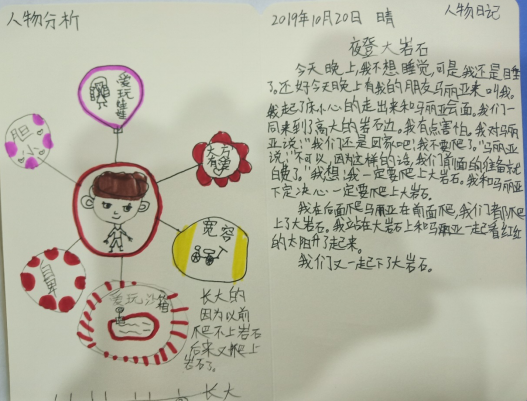 人物分析
爱玩娃娃
胆小
大方有爱
宽容
爱玩沙箱
长大的
因为以前
爬不上岩石
后来又爬上
岩石了。
长大
2019年10月20日 晴 人物日记
夜登大岩石
今天晚上,我不想睡觉,可是,我还是睡
了。还好今天晚上有我的朋友马丽亚来叫我。
我起了床小心的走出来和马丽亚会面。我们一
同来到了高大的岩石边。我有点害怕。我对马丽
亚说:"我们还是回家吧!我不要爬了。"马丽亚
说:"不可以,因为这样的话,我们前面的准备就
白费了。"我想:我一定要爬上大岩石。我和马丽亚
下定决心一定要爬上大岩石。
我在后面爬马丽亚在前面爬,我们都爬
上了大岩石。我站在大岩石上和马丽亚一起看红红
的太阳升了起来。
我们又一起下了大岩石。